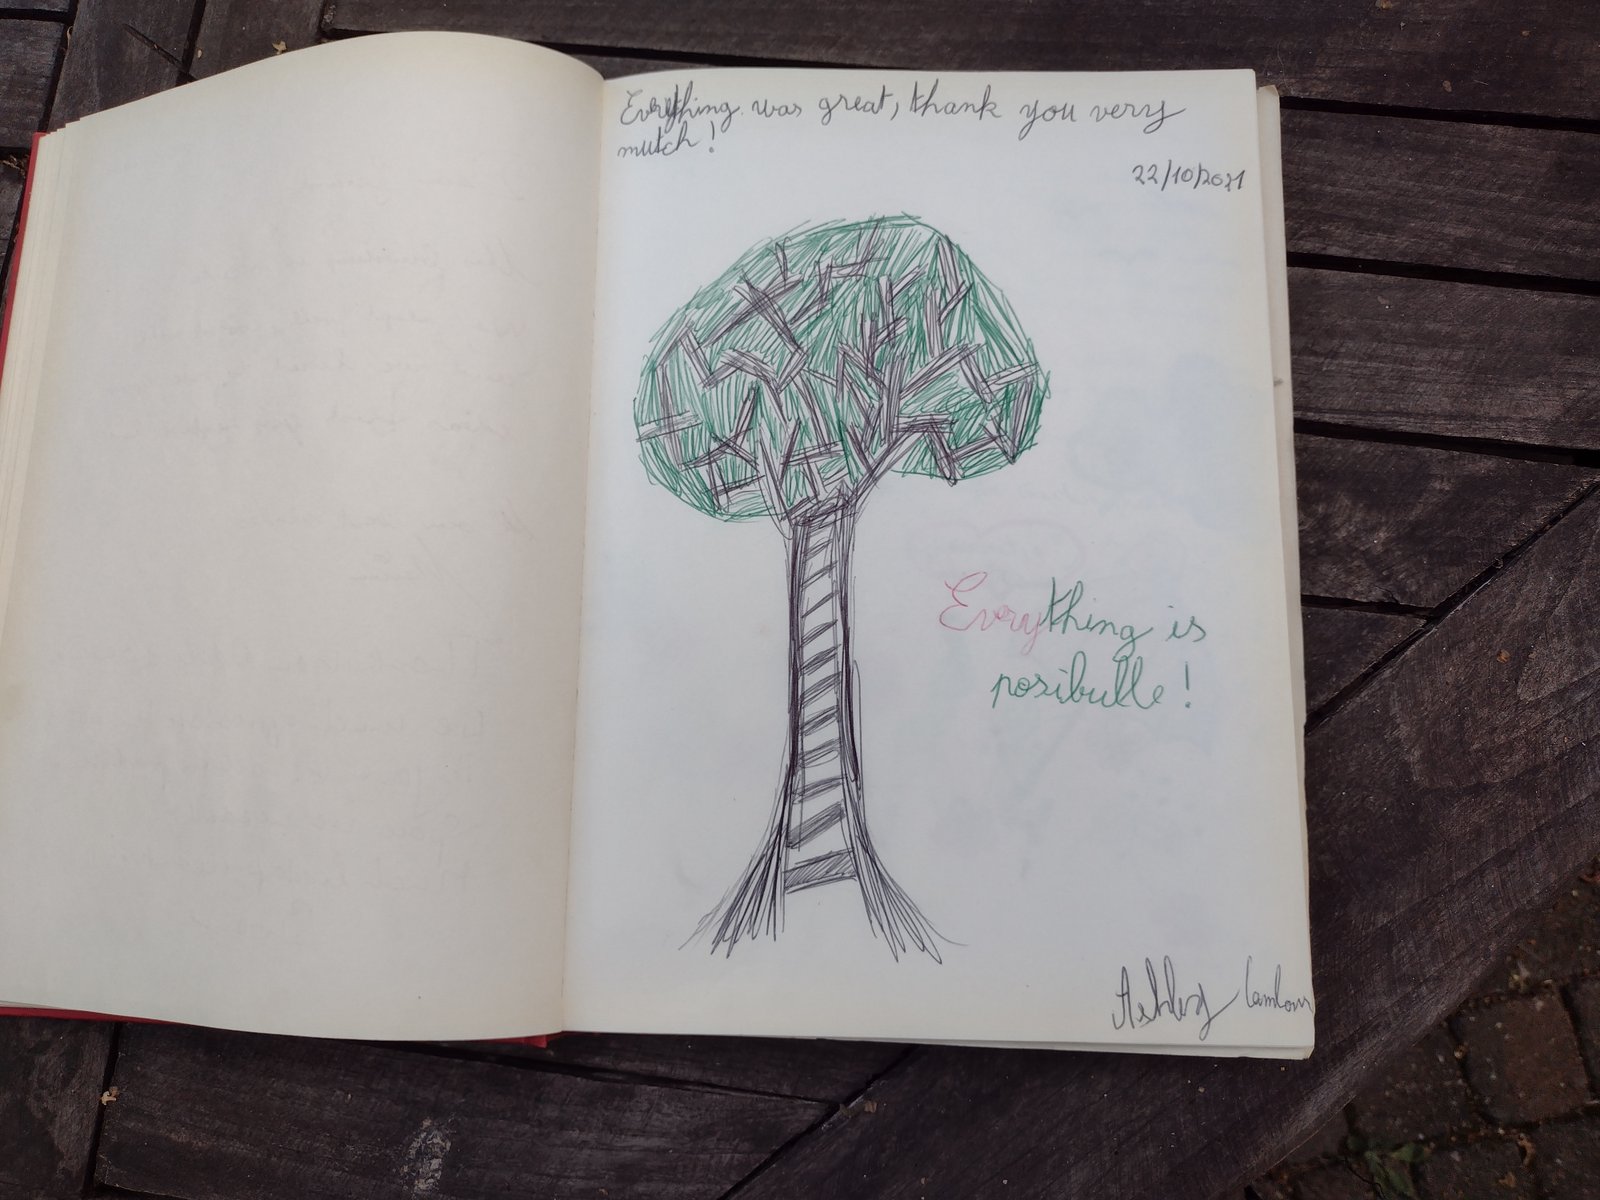 Everything was great, thank you very
mutch!
22/10/2021
Everything is
posibulle!
Ashley